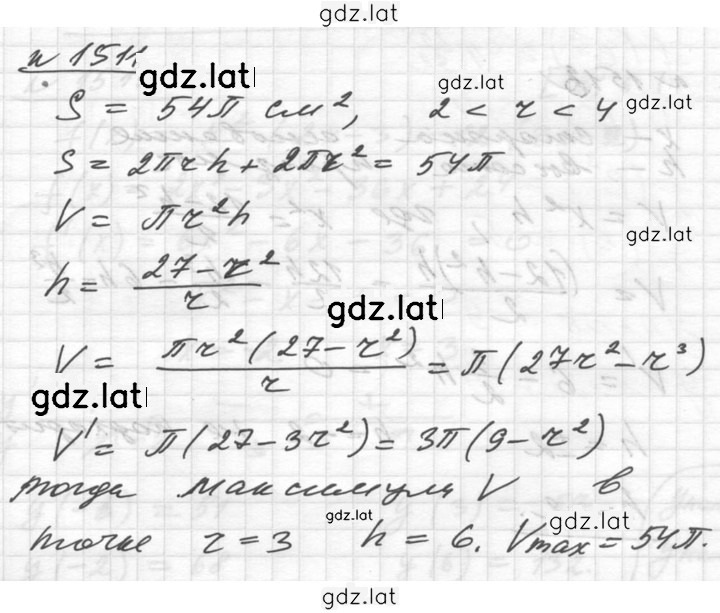 gdz.lat
n 1511.
gdz.lat
S = 54π см², 2 < r < 4
gdz.lat
gdz.lat
S = 2πrh + 2πr² = 54π
V = πr²h
gdz.lat
h = (27 - r²)/r
gdz.lat
V = πr²(27 - r²)/r = π(27r² - r³)
gdz.lat
V' = π(27 - 3r²) = 3π(9 - r²)
тогда максимум V в
gdz.lat
gdz.lat
точке r = 3 h = 6. Vmax = 54π.
gdz.lat